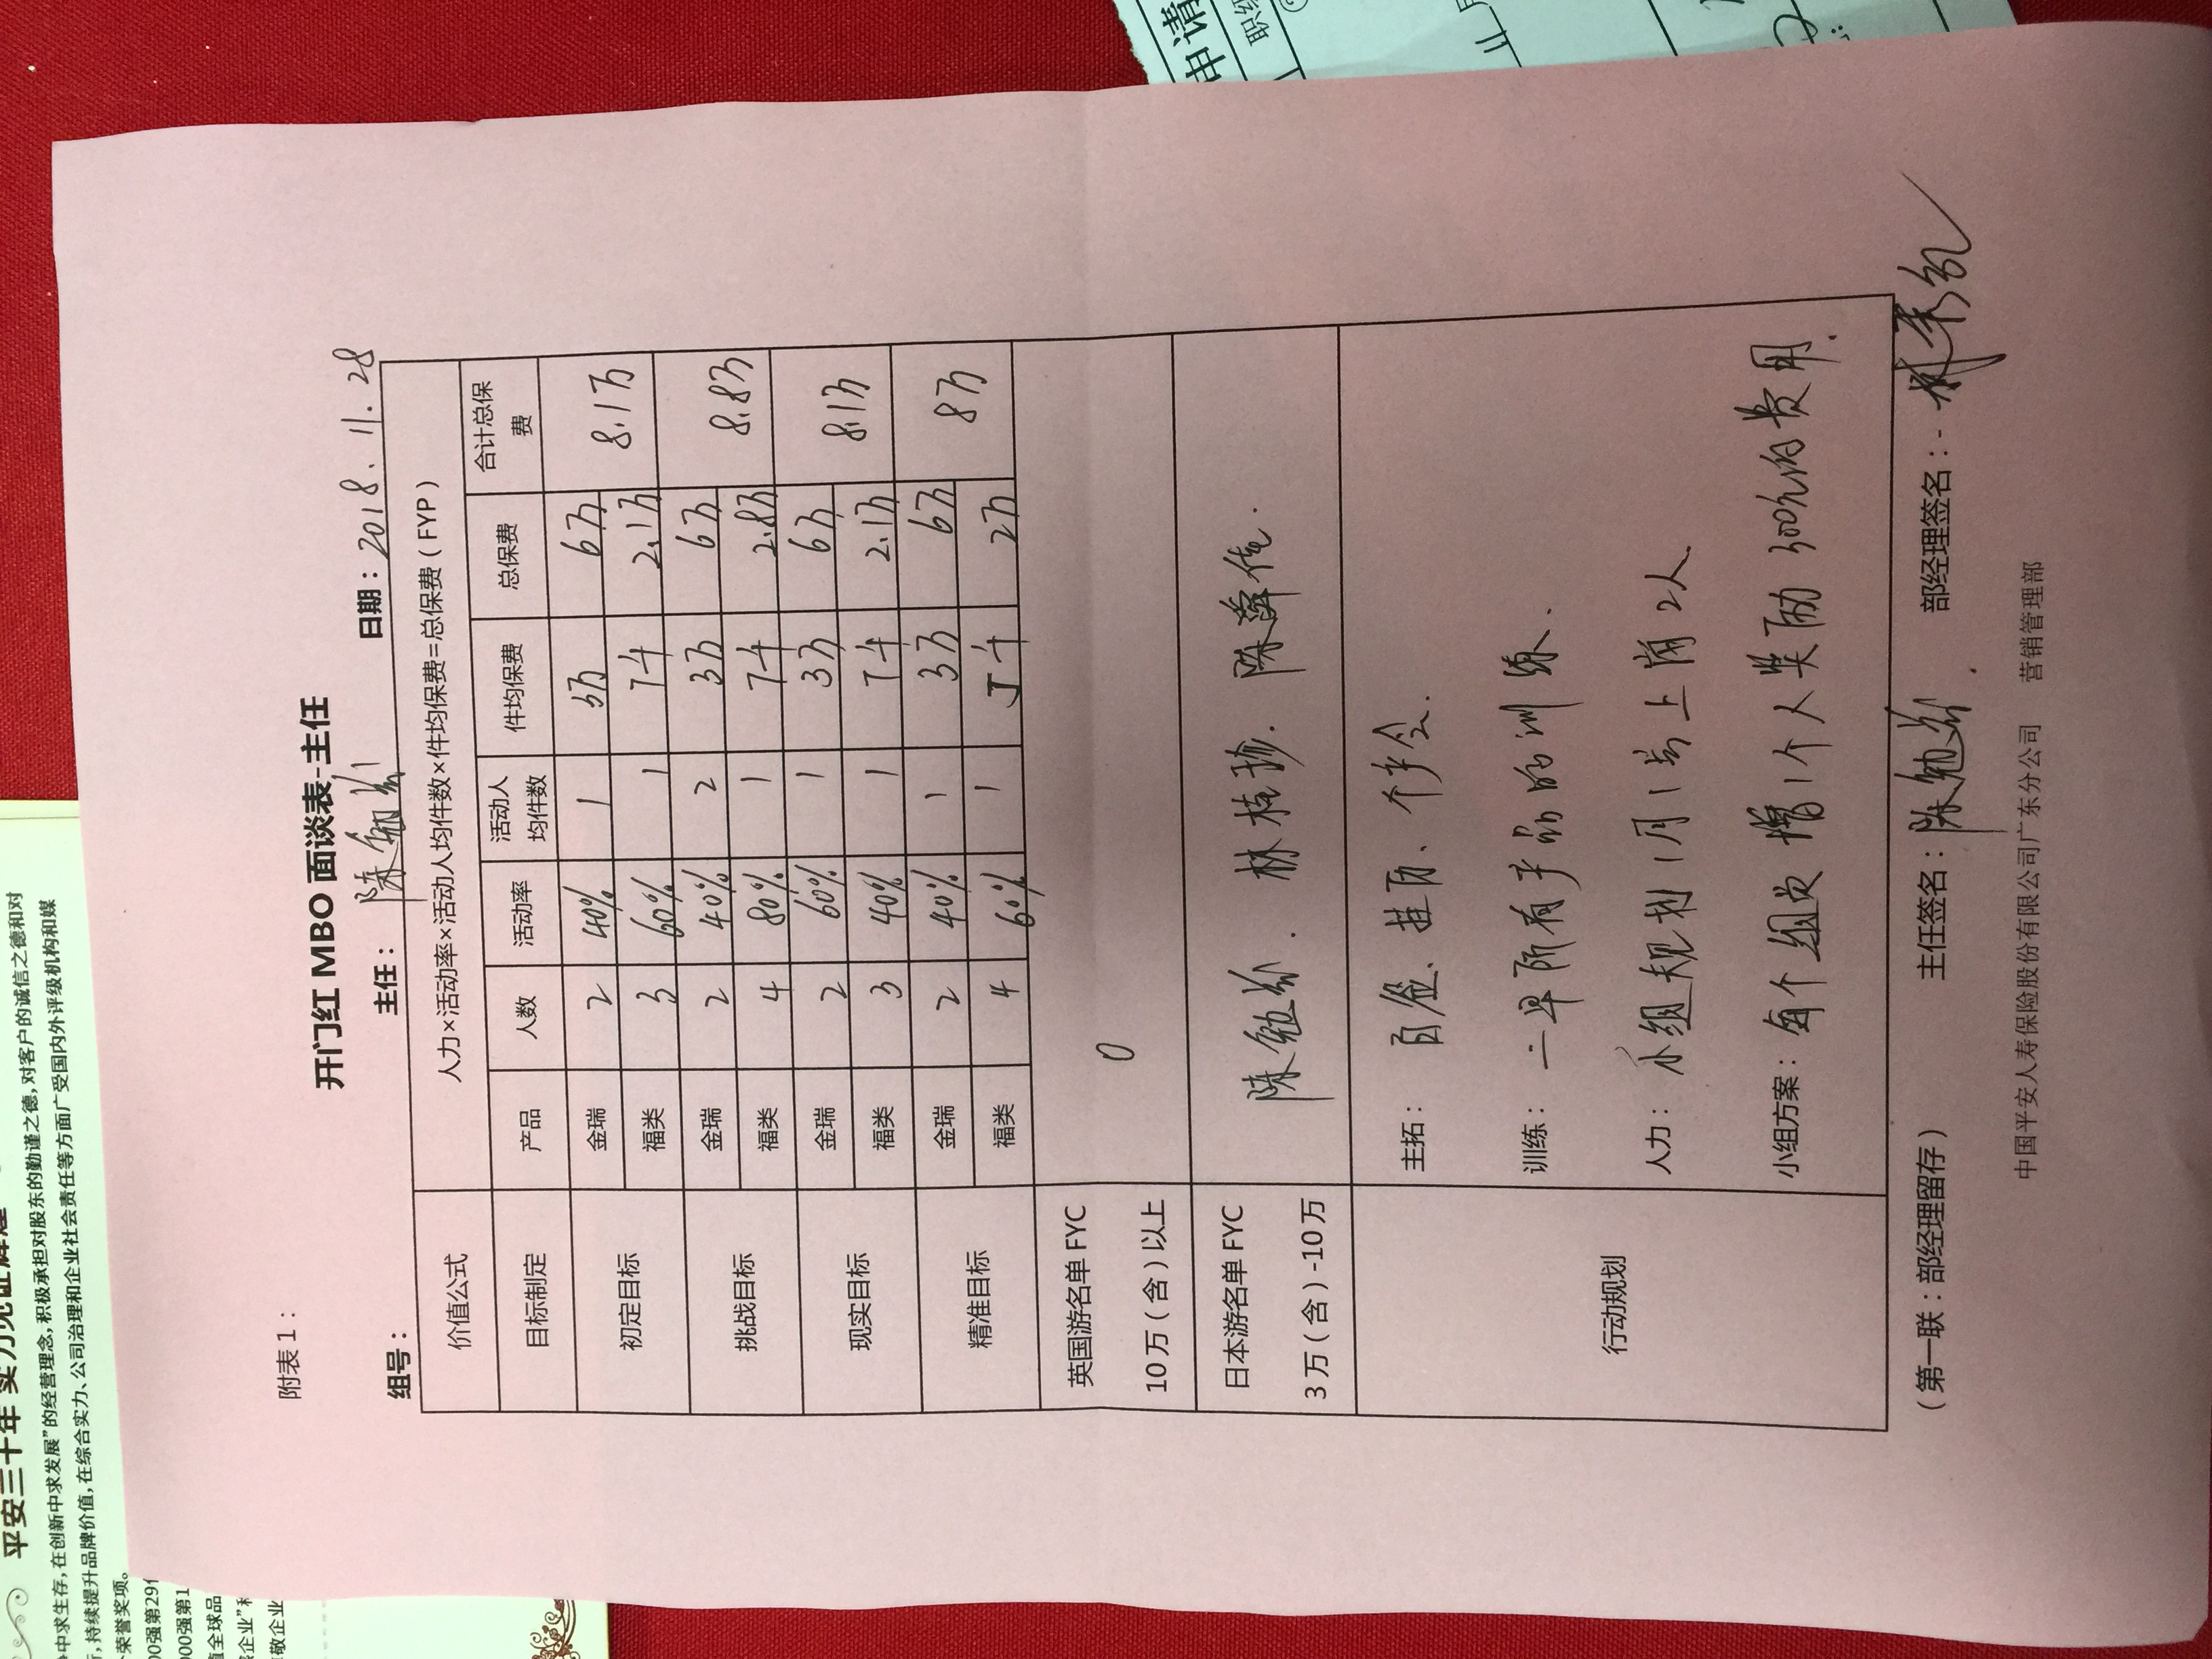 附表1：
开门红 MBO 面谈表-主任
组号： 主任： 陈勉 日期：2018.11.28
价值公式 人力×活动率×活动人均件数×件均保费=总保费（FYP）
目标制定 产品 人数 活动率 活动人均件数 件均保费 总保费 合计总保费
初定目标 金瑞 2 40% 1 3万 6万 8.1万
福类 3 60% 1 7千 2.1万
挑战目标 金瑞 2 40% 2 3万 6万 8.8万
福类 4 80% 1 7千 2.8万
现实目标 金瑞 2 60% 1 3万 6万 8.1万
福类 3 40% 1 7千 2.1万
精准目标 金瑞 2 40% 1 3万 6万 8万
福类 4 60% 1 5千 2万
英国游名单 FYC 10万（含）以上 0
日本游名单 FYC 3万（含）-10万 陈勉 . 林桂珍. 陈
行动规划
主拓：
训练： 二早所有产品的训练.
人力： 小组规划1月1号上岗2人.
小组方案： 每个组员增1个人奖励300元的费用.
（第一联：部经理留存） 主任签名：陈勉 部经理签名：
中国平安人寿保险股份有限公司广东分公司 营销管理部
平安三十年 实力见证辉煌
中求生存,在创新中求发展"的经营理念,积极承担对股东的勤谨之德,对客户的诚信之德和对
,持续提升品牌价值,在综合实力、公司治理和企业社会责任等方面广受国内外评级机构和媒
荣誉奖项。
00强第29
000强第1
值全球品
企业"和
敬企业
申请
职级